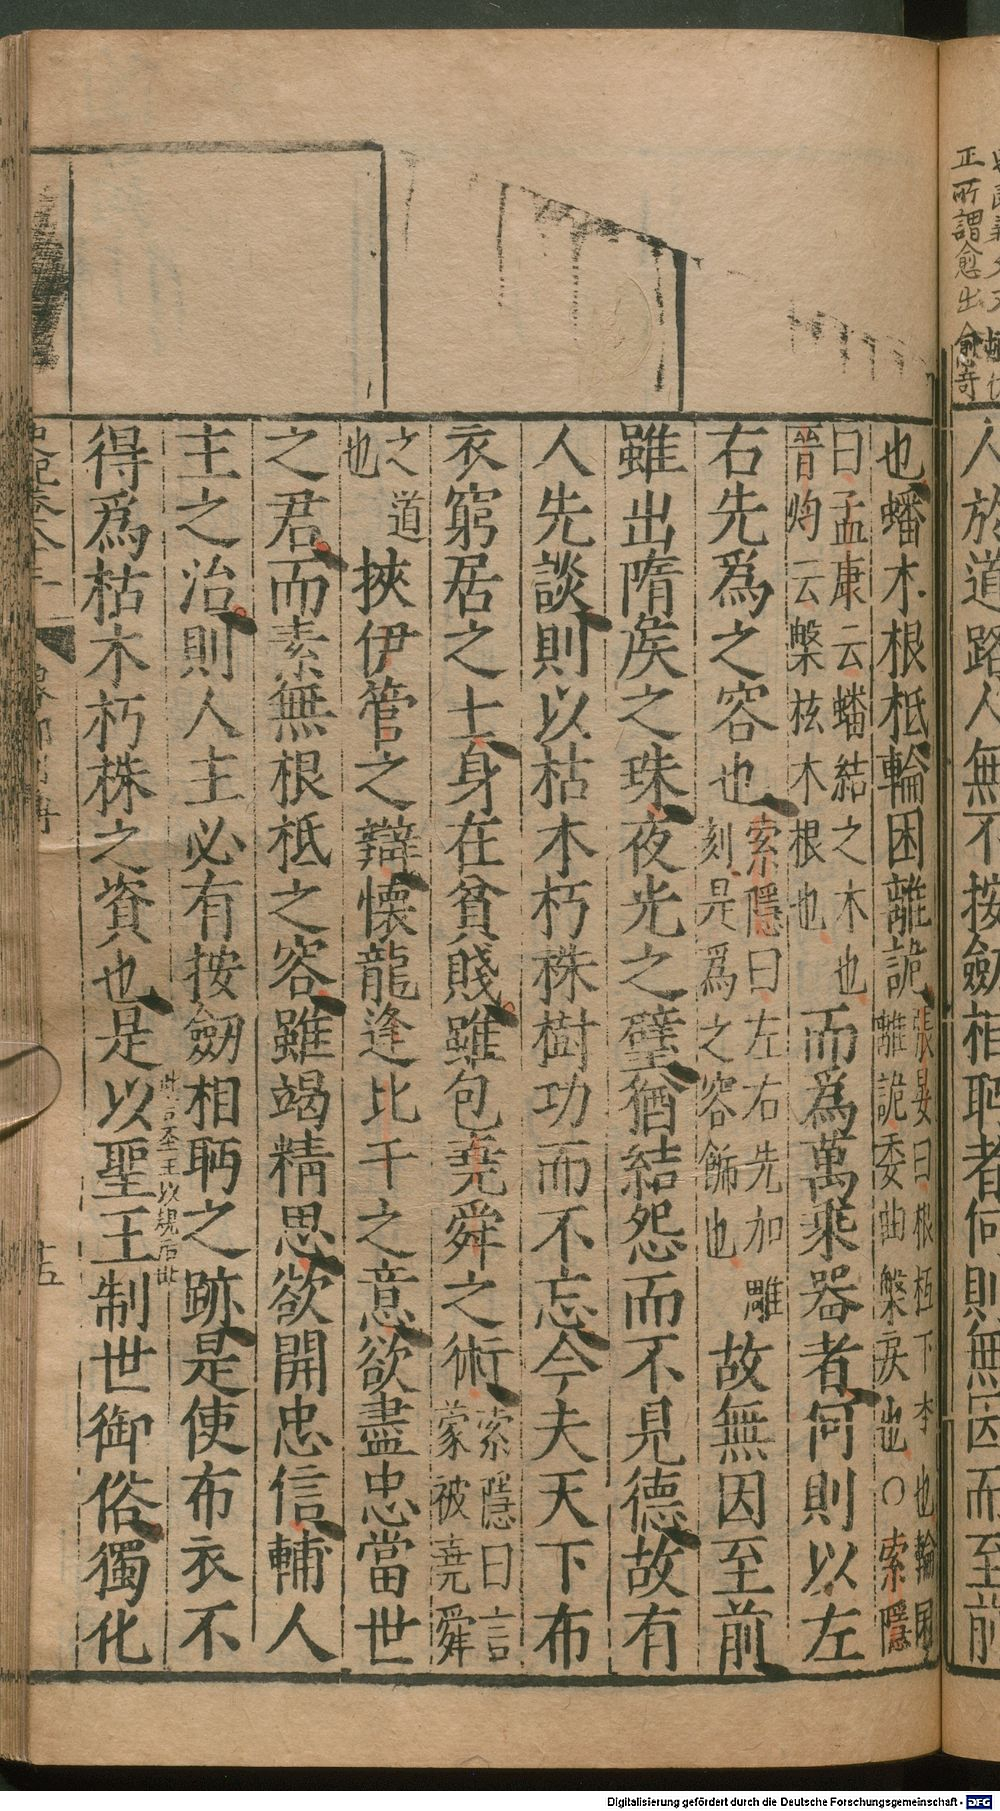 正所謂愈出愈奇
人於道路人無不按劒相眄者何則無因而至前
也蟠木根柢輪囷離詭張晏曰根柢下本也輪囷離詭委曲槃戾也○索隱
曰孟康云蟠結之木也晉灼云槃柭木根也而爲萬乘器者何則以左
右先爲之容也索隱曰左右先加雕刻是爲之容飾也故無因至前
雖出隋矦之珠夜光之璧猶結怨而不見德故有
人先談則以枯木朽株樹功而不忘今夫天下布
衣窮居之士身在貧賤雖包堯舜之術索隱曰言蒙被堯舜
之道也挾伊管之辯懷龍逢比干之意欲盡忠當世
之君而素無根柢之容雖竭精思欲開忠信輔人
主之治則人主必有按劒相眄之跡是使布衣不
此言聖王以規后世
得爲枯木朽株之資也是以聖王制世御俗獨化
十五
Digitalisierung gefördert durch die Deutsche Forschungsgemeinschaft - DFG